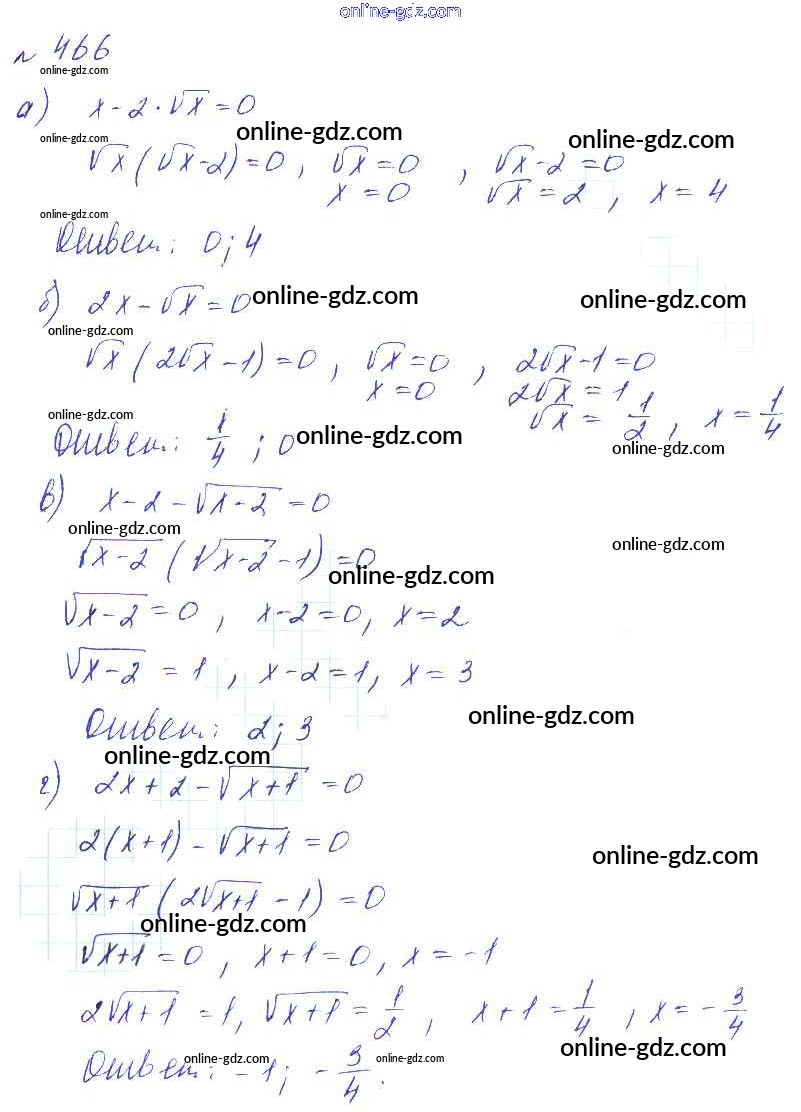 online-gdz.com
№ 466
online-gdz.com
а) x - 2 · √x = 0
online-gdz.com online-gdz.com online-gdz.com
√x (√x - 2) = 0, √x = 0, √x - 2 = 0
x = 0 √x = 2, x = 4
online-gdz.com
Ответ: 0; 4
б) 2x - √x = 0 online-gdz.com online-gdz.com
online-gdz.com
√x (2√x - 1) = 0, √x = 0, 2√x - 1 = 0
x = 0 2√x = 1
online-gdz.com √x = 1/2, x = 1/4
Ответ: 1/4; 0 online-gdz.com online-gdz.com
в) x - 2 - √(x-2) = 0
online-gdz.com online-gdz.com
√(x-2) (√(x-2) - 1) = 0
online-gdz.com
√(x-2) = 0, x - 2 = 0, x = 2
√(x-2) = 1, x - 2 = 1, x = 3
online-gdz.com
Ответ: 2; 3
online-gdz.com
г) 2x + 2 - √(x+1) = 0
2(x+1) - √(x+1) = 0
online-gdz.com
√(x+1) (2√(x+1) - 1) = 0
online-gdz.com
√(x+1) = 0, x + 1 = 0, x = -1
2√(x+1) = 1, √(x+1) = 1/2, x + 1 = 1/4, x = -3/4
online-gdz.com online-gdz.com online-gdz.com
Ответ: -1; -3/4.